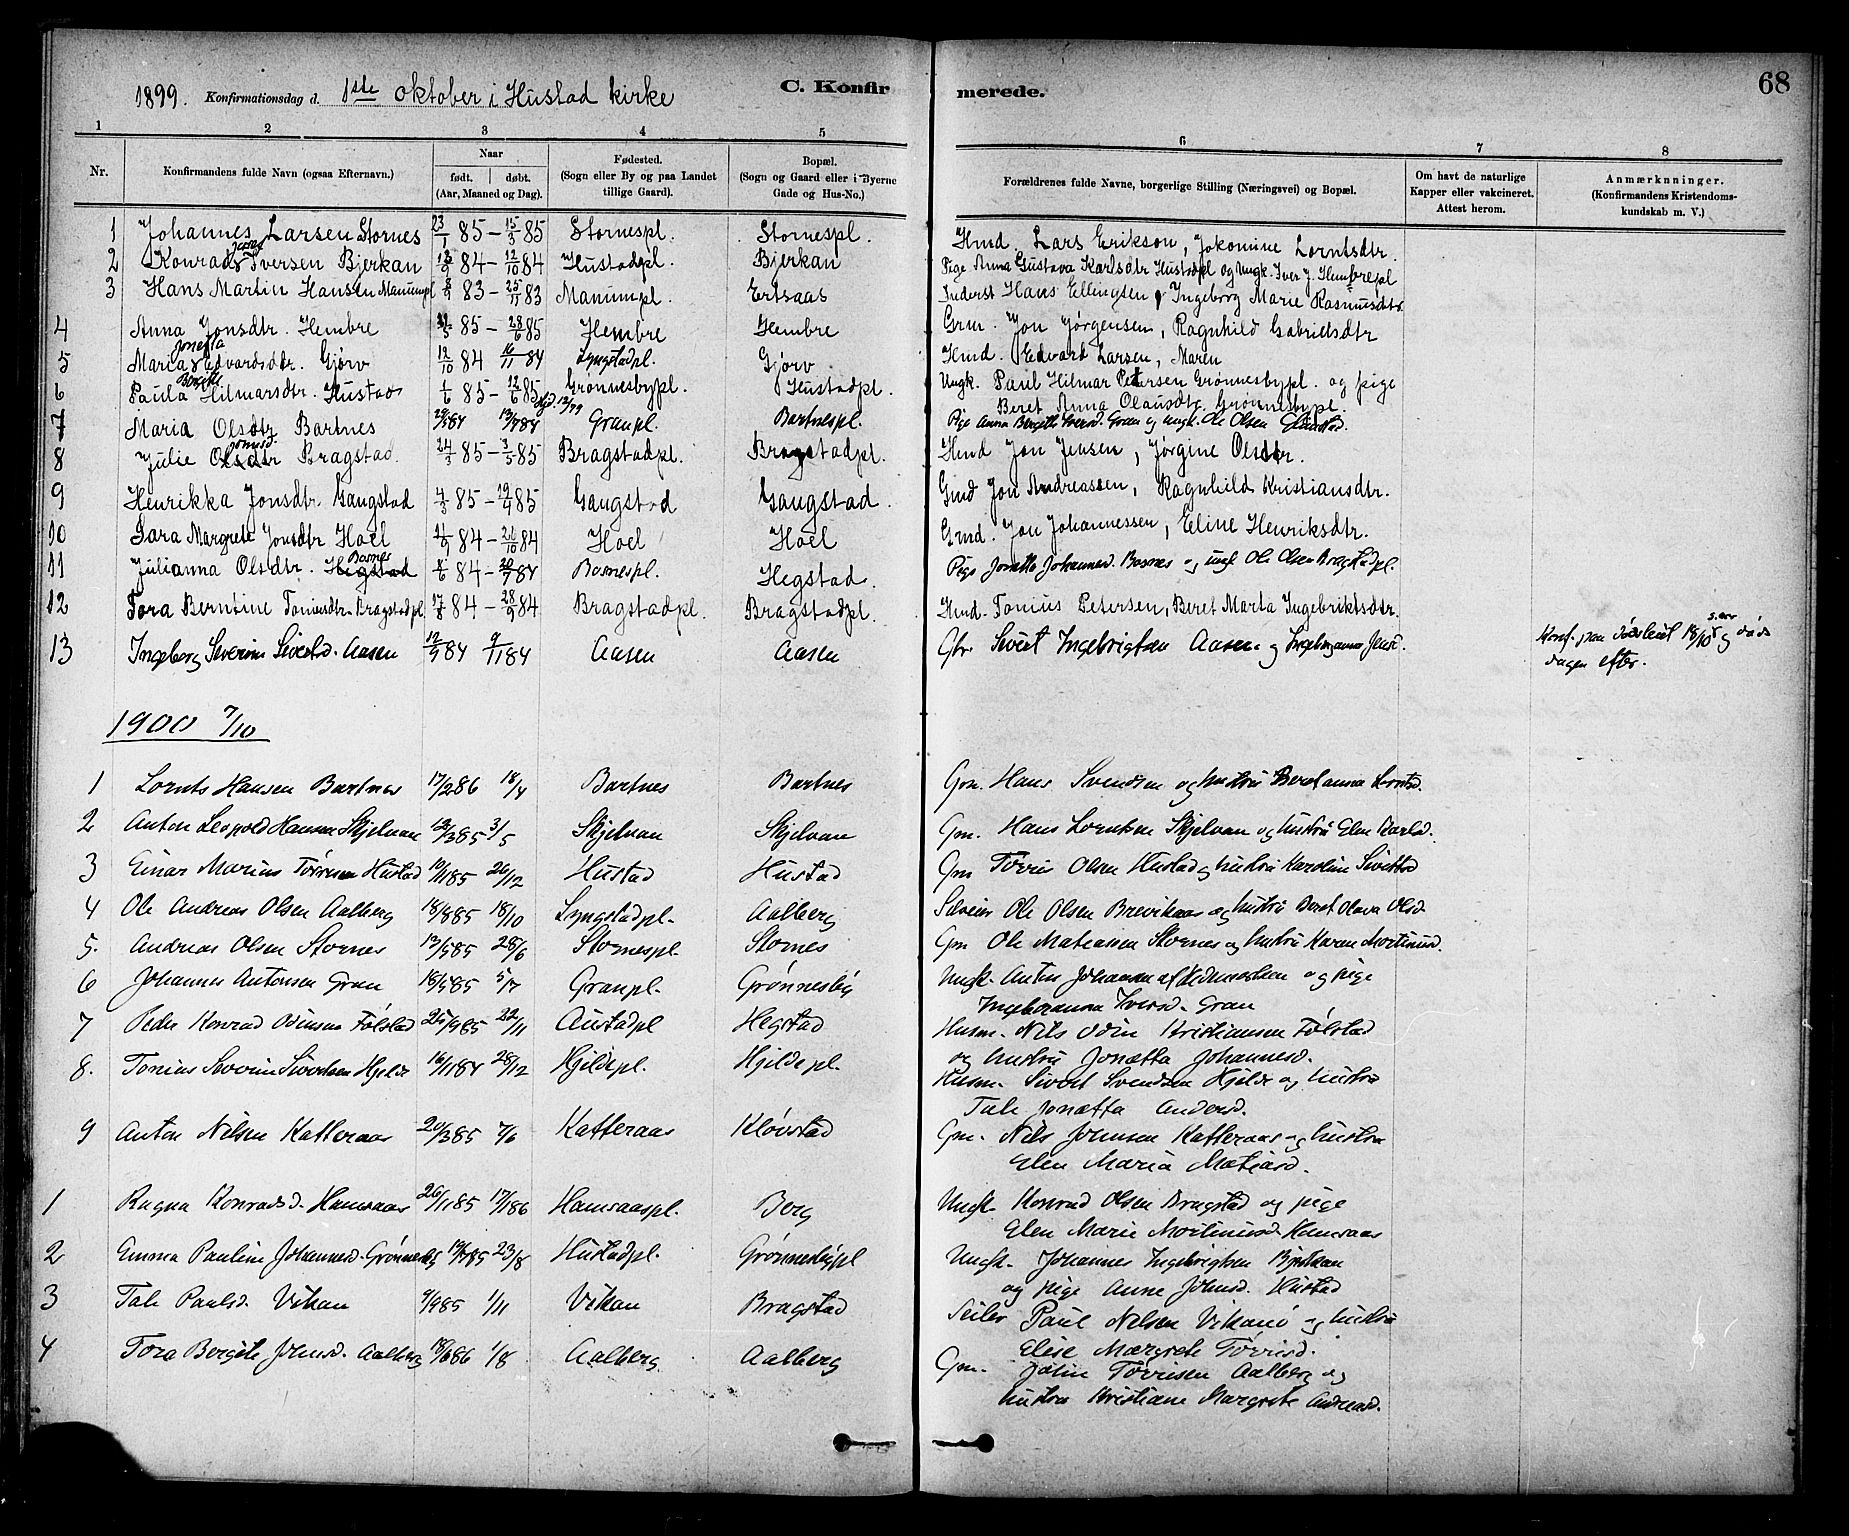 68
1899. Konfirmationsdag d. 1ste oktober i Hustad kirke C. Konfir merede.
1 2 3 4 5 6 7 8
Nr. Konfirmandens fulde Navn (ogsaa Efternavn.) Naar født. døbt. (Aar, Maaned og Dag). Fødested. (Sogn eller By og paa Landet tillige Gaard). Bopæl. (Sogn og Gaard eller i Byerne Gade og Hus-No.) Forældrenes fulde Navne, borgerlige Stilling (Næringsvei) og Bopæl. Om havt de naturlige Kapper eller vakcineret. Attest herom. Anmærknninger. (Konfirmandens Kristendomskundskab m. V.)
1 Johannes Larsen Stornes 23/1 85 – 15/3 85 Stornespl. Stornespl. Hmd. Lars Erikson, Jokomine Lorntsdtr.
2 Konrad Iversen Bjerkan 84 – 12/10 84 Hustadpl. Bjerkan Pige Anna Gustava Karlsdtr Hustadpl og Ungk. Iver J. Hembrepl
3 Hans Martin Hansen Manumpl 83 – 25/11 83 Manumpl. Ertsaas Inderst Hans Ellingsen, Ingeborg Marie Rasmusdtr.
4 Anna Jonsdtr. Hembre 85 – 28/6 85 Hembre Hembre Grm. Jon Jørgensen, Ragnhild Gabrielsdtr
5 Maria Jonetta Edvardsdtr. Gjørv 12/10 84 16/11 84 Lyngstadpl. Gjørv Hmd. Edvard Larsen, Maren
6 Paula Hilmarsdtr. Hustad 1/6 85 – 12/6 85 Grønnesbypl. Hustadpl. Ungk. Paul Hilmar Petersen Grønnesbypl. og pige
Beret Anna Olausdtr. Grønnesbypl.
7 Maria Olsdtr Bartnes 84 84 Granpl. Bartnespl. Pige Anna Bergitte Iversd. Gran og ungk. Ole Olsen
8 Julie Bragstad. 24/3 85 – 3/5 85 Bragstadpl. Bragstadpl. Hmd Jon Jensen, Jørgine Olsdtr.
9 Henrikka Jonsdtr. Gaugstad 4/3 85 – 19/4 85 Gaugstad Gaugstad Gmd Jon Andreassen, Ragnhild Kristiansdtr.
10 Sara Margrete Jonsdtr Hoel 84 – 26/10 84 Hoel Hoel Gmd. Jon Johannessen, Eline Henriksdtr.
11 Julianna Olsdtr. Hegstad Bosnes 84 – 20/7 84 Bosnespl. Hegstad. Pige Jonetta Johannesd. Bosnes og ungk Ole Olsen Bragstadpl.
12 Tora Berntine Toniusdtr. Bragstadpl. 17/8 84 – 28/9 84 Bragstadpl. Bragstadpl. Hmd. Tonius Petersen, Beret Marta Ingebriktsdtr.
13 Ingeborg Severine Sivertsd. Aasen 12/9 84 9/11 84 Aasen Aasen Gbr. Sivert Ingebrigtsen Aasen og Ingeboranna Jensd. Konf. paa dødsleiet 18/10 og døde
dagen efter.
1900 7/10
1 Lornts Hansen Bartnes 17/2 86 18/4 Bartnes Bartnes Gm. Hans Svendsen og hustru Beretanna Lorntsd.
2 Anton Leopold Hansen Skjelvan 12/3 85 3/5 Skjelvan Skjelvan Gm. Hans Lorntsen Skjelvan og hustru Elen Karlsd.
3 Einar Marius Tørrisen Hustad 10/11 85 26/12 Hustad Hustad Gm Tørris Olsen Hustad og hustru Karoline Sivertsd
4 Ole Andreas Olsen Aalberg 18/8 85 18/10 Lyngstadpl. Aalberg Selveier Ole Olsen Brevikaas og hustru Beret Olava Olsd
5. Andreas Olsen Stornes 13/5 85 28/6 Stornespl. Stornes Gm Ole Matiassen Stornes og hustru Karen Mortinusd.
6 Johannes Antonsen Gran 18/5 85 5/7 Granpl. Grønnesby Ungk. Anton Johansen af Hedemarken og pige
Ingeboranna Iversd. Gran
7 Peder Konrad Odinsen Følstad 25/9 85 22/11 Austadpl Hegstad Husm. Nils Odin Kristiansen Følstad
og hustru Jonetta Johannesd.
8. Tonius Severin Sivertsen Hjelde 16/11 84 28/12 Hjeldepl. Hjeldepl. Husm. Sivert Svendsen Hjelde og hustru
Tale Jonetta Andersd.
9 Anton Nilsen Katteraas 20/3 85 7/6 Katteraas Kløvstad Gm. Nils Johnsen Katteraas og hustru
Elen Maria Matiasd.
1 Ragna Konradsd. Hamraas 26/11 85 17/1 86 Hamraaspl. Berg Ungk. Konrad Olsen Bragstad og pige
Elen Marie Mortinusd. Hamraas
2 Emma Pauline Johannesd. Grønnesby 85 23/8 Hustadpl. Grønnesbypl Ungk. Johannes Ingebrigtsen Bjerkan
og pige Anne Johnsd. Hustad
3 Tale Paulsd. Vikan 9/9 85 1/11 Vikan Bragstad Seiler Paul Nilsen Vikan og hustru
Elise Margrete Tørrisd.
4 Tora Bergite Johnsd. Aalberg 18/6 86 1/8 Aalberg Aalberg Gm. John Tørrisen Aalberg og
hustru Kristiane Margrete Andreasd.